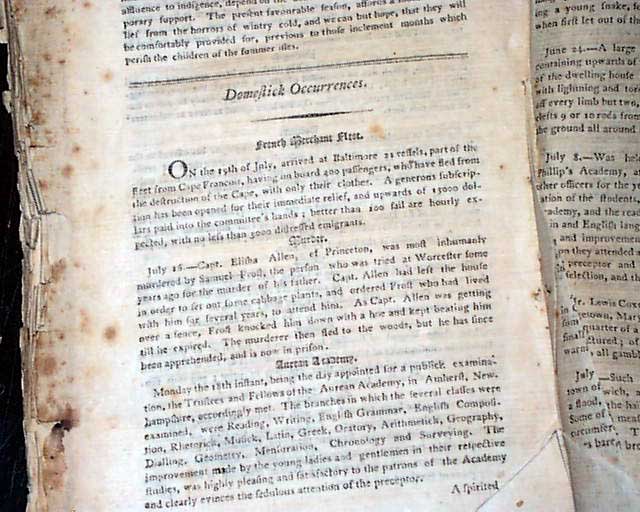 affluence to indigence, depend on the
porary support. The present favorable season, affords a
lief from the horrors of wintry cold, and we can but hope, that they will
be comfortably provided for, previous to those inclement months which
perish the children of the summer isles.
Domeſtick Occurrences.
French Merchant Fleet.
ON the 15th of July, arrived at Baltimore 21 veſſels, part of the
fleet from Cape Francois, having on board 400 paſſengers, who have fled from
the deſtruction of the Cape, with only their clothes. A generous ſubſcrip-
tion has been opened for their immediate relief, and upwards of 15000 dol-
lars paid into the committee's hands; better than 100 ſail are hourly ex-
pected, with no leſs than 5000 diſtreſſed emigrants.
Murder.
July 16.—Capt. Eliſha Allen, of Princeton, was moſt inhumanly
murdered by Samuel Froſt, the perſon who was tried at Worceſter ſome
years ago for the murder of his father. Capt. Allen had left the houſe
in order to ſet out ſome cabbage plants, and ordered Froſt who had lived
with him for ſeveral years, to attend him. As Capt. Allen was getting
over a fence, Froſt knocked him down with a hoe and kept beating him
till he expired. The murderer then fled to the woods, but he has ſince
been apprehended, and is now in priſon.
Aurean Academy.
Monday the 18th inſtant, being the day appointed for a publick examina-
tion, the Truſtees and Fellows of the Aurean Academy, in Amherſt, New-
hampſhire, accordingly met. The branches in which the ſeveral claſſes were
examined, were Reading, Writing, Engliſh Grammar, Engliſh Compoſi-
tion, Rhetorick, Muſick, Latin, Greek, Oratory, Arithmetick, Geography,
Dialling, Geometry, Menſuration, Chronology and Surveying. The
improvement made by the young ladies and gentlemen in their reſpective
ſtudies, was highly pleaſing and ſatisfactory to the patrons of the Academy
and clearly evinces the ſedulous attention of the preceptor.
A ſpirited
ing a young ſnake,
when firſt let out of the
June 24.—A large
containing upwards of
of the dwelling houſe
with lightning and
off every limb but two
clefts 9 or 10 rods from
the ground all around
July 8.—Was
Phillip's Academy, at
other officers for the
ation of the ſtudents
academy, and the
in and Engliſh
and improvement
they attended
preceptor and
ſelection, and
Lewis Cox
Mary
quarter of
of
all
July —Such
town of which,
a flood, the
Some of